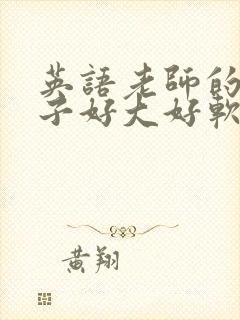 英語老師的
子好大好軟
黄翔